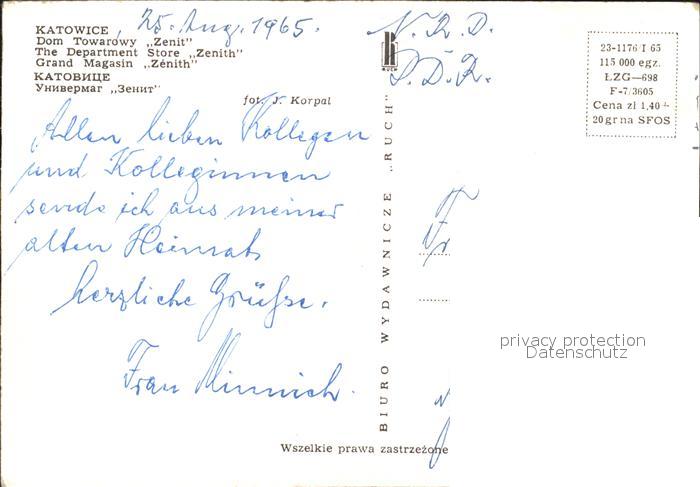 KATOWICE, 25. Aug. 1965.
Dom Towarowy „Zenit"
The Department Store „Zenith"
Grand Magasin „Zénith"
КАТОВИЦЕ
Универмаг „Зенит"
fot. J. Korpal
Allen lieben Kollegen
und Kolleginnen
sende ich aus meiner
alten Heimat
herzliche Grüße.
Frau Minnich.
BIURO WYDAWNICZE „RUCH"
RUCH
Wszelkie prawa zastrzeżone
23-1176/I 65
115 000 egz.
ŁZG—698
F-7/3605
Cena zł 1,40 +
20 gr na SFOS
privacy protection
Datenschutz